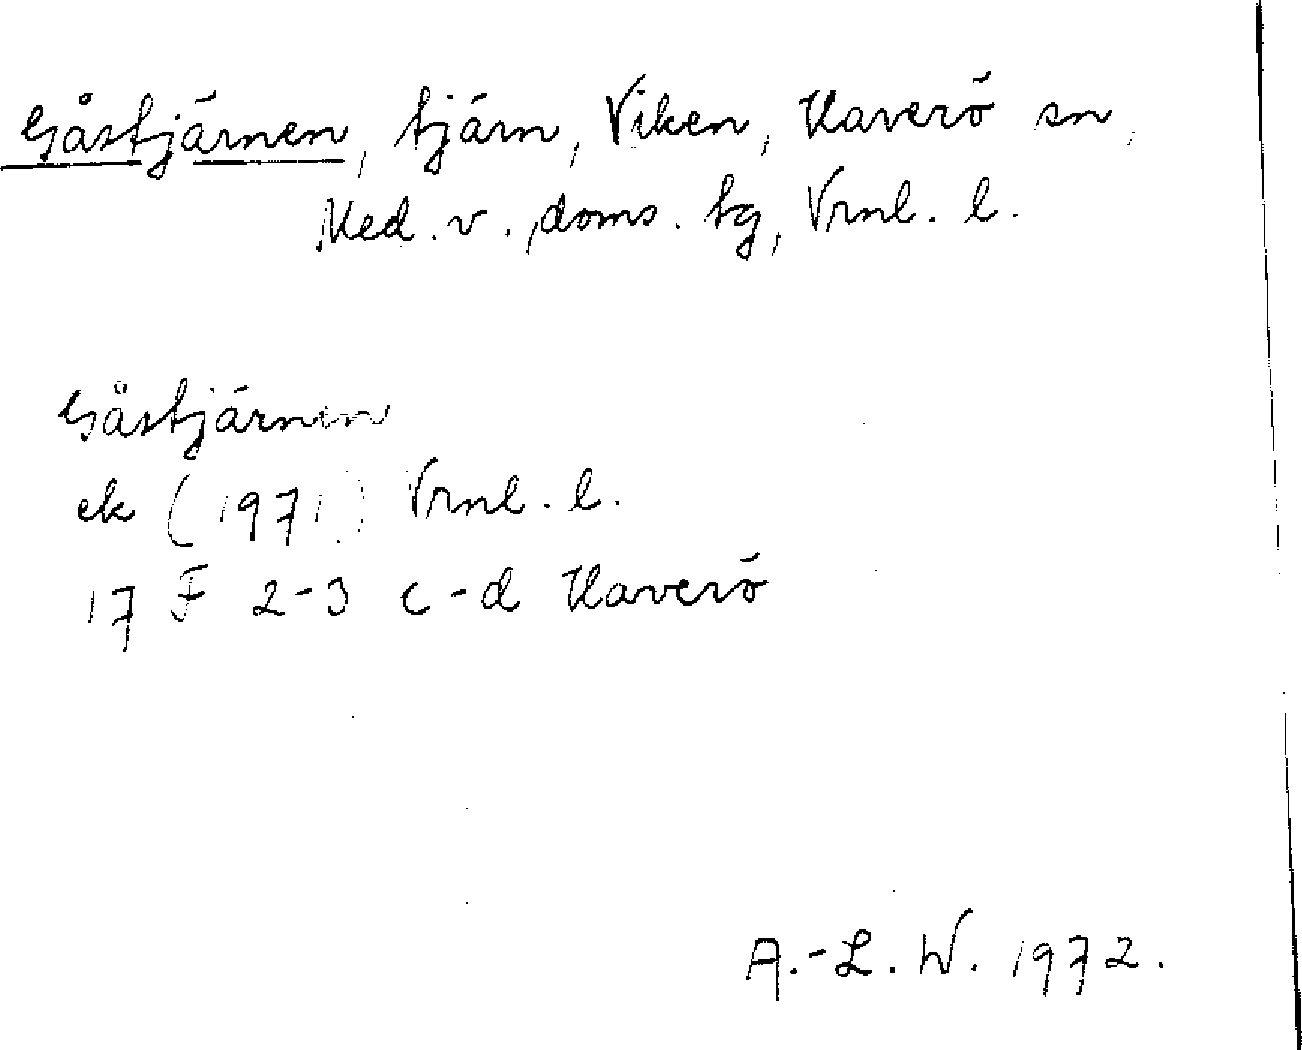 Gåstjärnen, tjärn, Viken, Haverö sn,
Med. v. doms. tg, Vrnl. l.
Gåstjärnen
ek (1971) Vrnl. l.
17 F 2-3 c-d Haverö
A.-L. W. 1972.